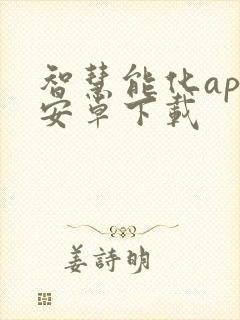 智慧能化ap
安卓下載
姜詩明